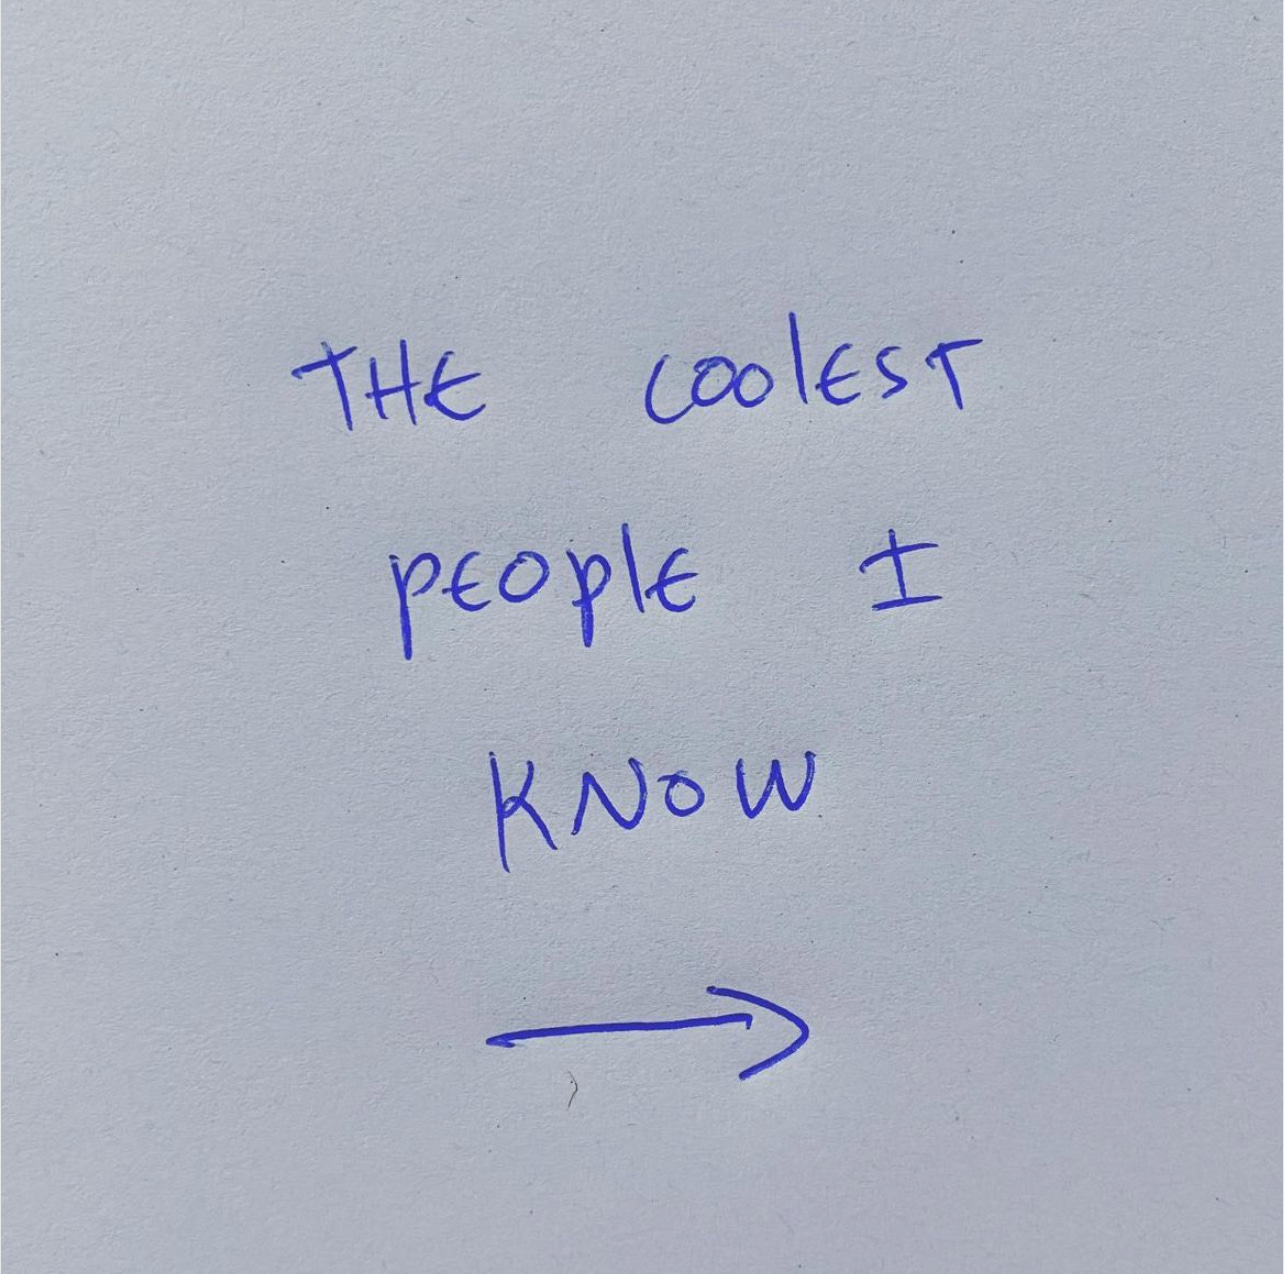 THE COOLEST
PEOPLE I
KNOW